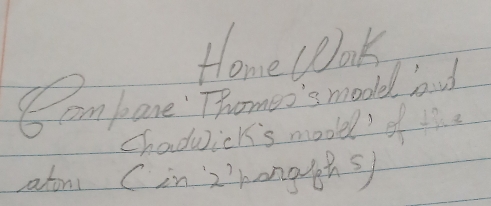 Home Work
Compare 'Thomos's model and
Chadwick's model' of the
atom (in '2' paragraphs)